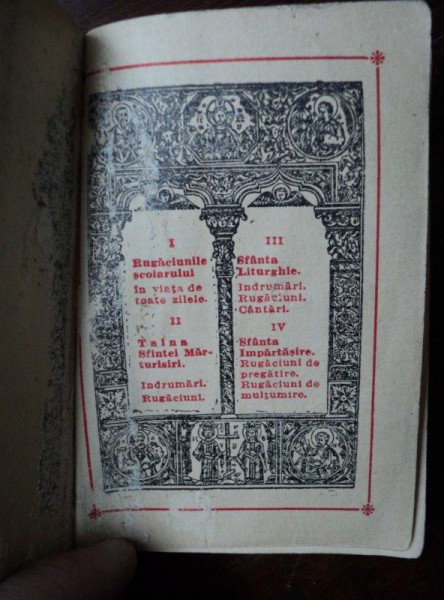 I
Rugăciunile
școlarului
în viața de
toate zilele.
II
Taina
Sfintei Măr-
turisiri.
Indrumări.
Rugăciuni.
III
Sfânta
Liturghie.
Indrumări.
Rugăciuni.
Cântări.
IV
Sfânta
Împărtășire.
Rugăciuni de
pregătire.
Rugăciuni de
mulțumire.